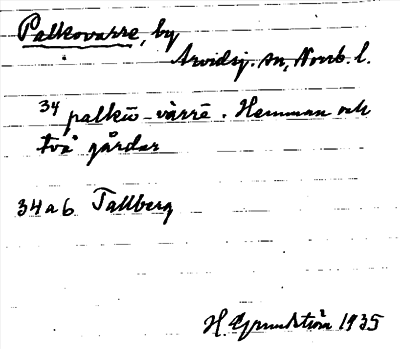 Palkovarre, by
Arvidsj. sn, Norrb. l.
34 palkū-vàrrē. Hemman och
två gårdar
34a6 Tallberg
H. Grundström 1935